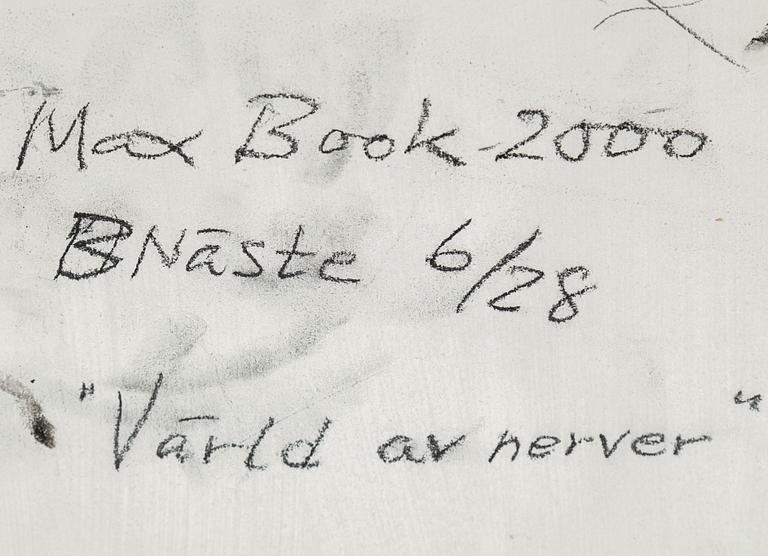 Max Book-2000
BNäste 6/28
"Värld av nerver"